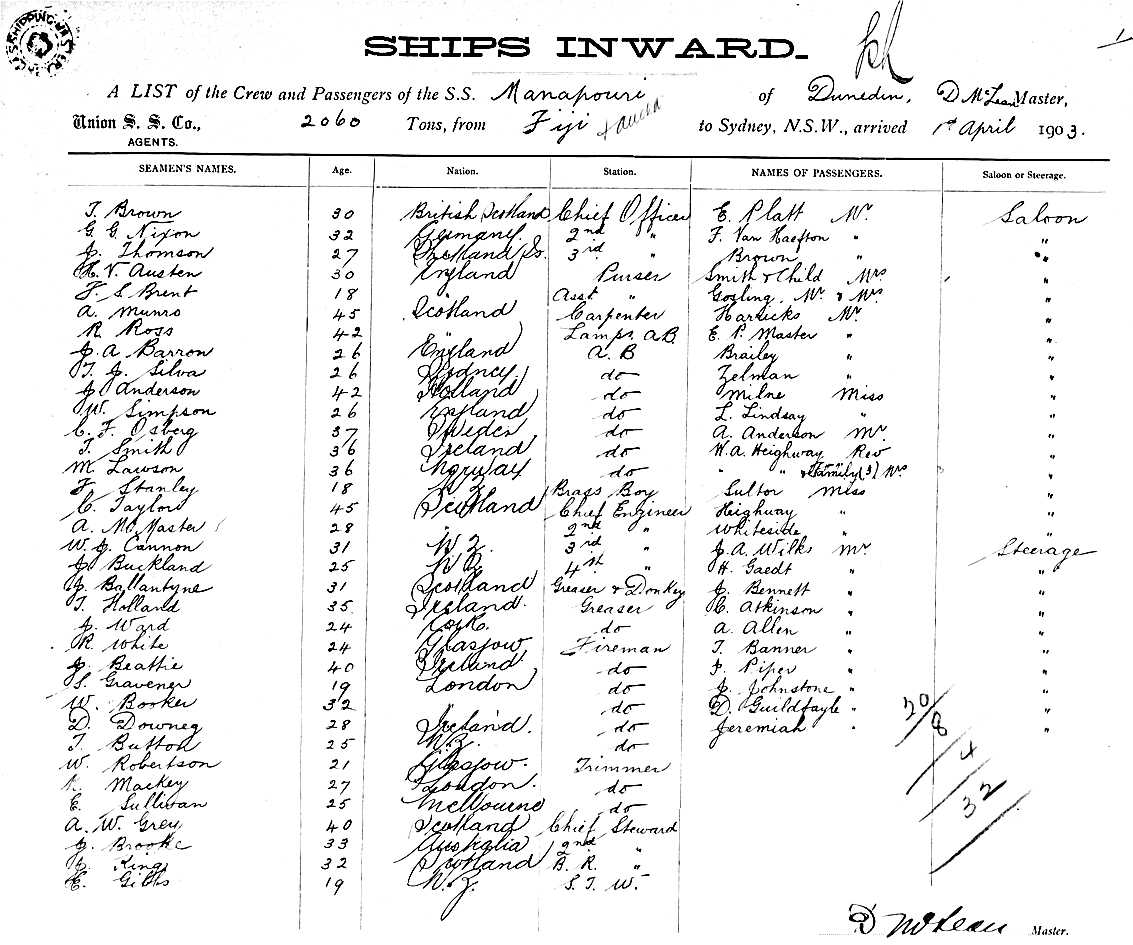 SHIPS INWARD.
A LIST of the Crew and Passengers of the S.S. Manapouri of Dunedin, D McLean Master,
Union S. S. Co., 2060 Tons, from Fiji to Sydney, N.S.W., arrived 1st April 1903.
AGENTS.
SEAMEN'S NAMES. Age. Nation. Station. NAMES OF PASSENGERS. Saloon or Steerage.
T. Brown 30 British Scotland Chief Officer E. Platt Mr Saloon
G G Nixon 32 Germany 2nd " F. Van Haefton " "
J. Thomson 27 Shetland Is. 3rd " Brown " "
H. V. Austen 30 England Purser Smith & Child Mrs "
F. S Brent 18 Asst " Gosling. Mr & Mrs "
A. Munro 45 Scotland Carpenter Harricks Mr "
R Ross 42 " Lamps AB E. P. Master " "
J. A Barron 26 England A. B Brailey " "
T. J. Silva 26 Sydney do Zelman " "
J Anderson 42 Holland do Milne Miss "
W. Simpson 26 England do L. Lindsay " "
C. F. Osberg 37 Sweden do A. Anderson Mr. "
T. Smith 36 Ireland do W. A. Heighway Rev "
M Lawson 36 Norway do " " & Family (3) Mrs
F Stanley 18 N Z Brass Boy Sultor Miss "
C. Taylor 45 Scotland Chief Engineer Heighway " "
A. McMaster 28 2nd " Whiteside " "
W. J. Cannon 31 N Z. 3rd " J. A. Wilks Mr Steerage
J Buckland 25 N Z. 4th " H. Gaedt " "
J. Ballantyne 31 Scotland Greaser & Donkey J. Bennett " "
T. Holland 35. Ireland. Greaser C. Atkinson " "
J. Ward 24 Cork. do A. Allen " "
R. White 24 Glasgow Fireman T. Banner " "
J. Beattie 40 Ireland do J. Piper " "
S. Gravener 19 London do J. Johnstone " "
W. Booker 32 do D. Guildfayle " "
D. Downey 28 Ireland. do Jeremiah " "
T. Button 25 N. Z. do
W. Robertson 21 Glasgow. Trimmer
Mackey 27 London. do
E. Sullivan 25 Melbourne do
A. W. Grey 40 Scotland Chief Steward
J. Brooke 33 Australia 2nd "
J. King 32 Scotland B. R. "
E. Gibbs 19 N. Z. S. T. W.
20/8/4/32
D McLean Master.